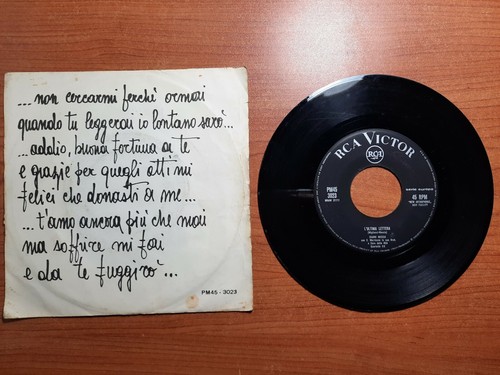 ... non cercarmi perchè ormai
quando tu leggerai io lontano sarò...
... addio, buona fortuna a te
e grazie per quegli attimi
felici che donasti a me...
... t'amo ancora più che mai
ma soffrire mi fai
e da te fuggirò...
PM45 - 3023
RCA VICTOR
RCA
PM45
3023
45 RPM
L'ULTIMA LETTERA